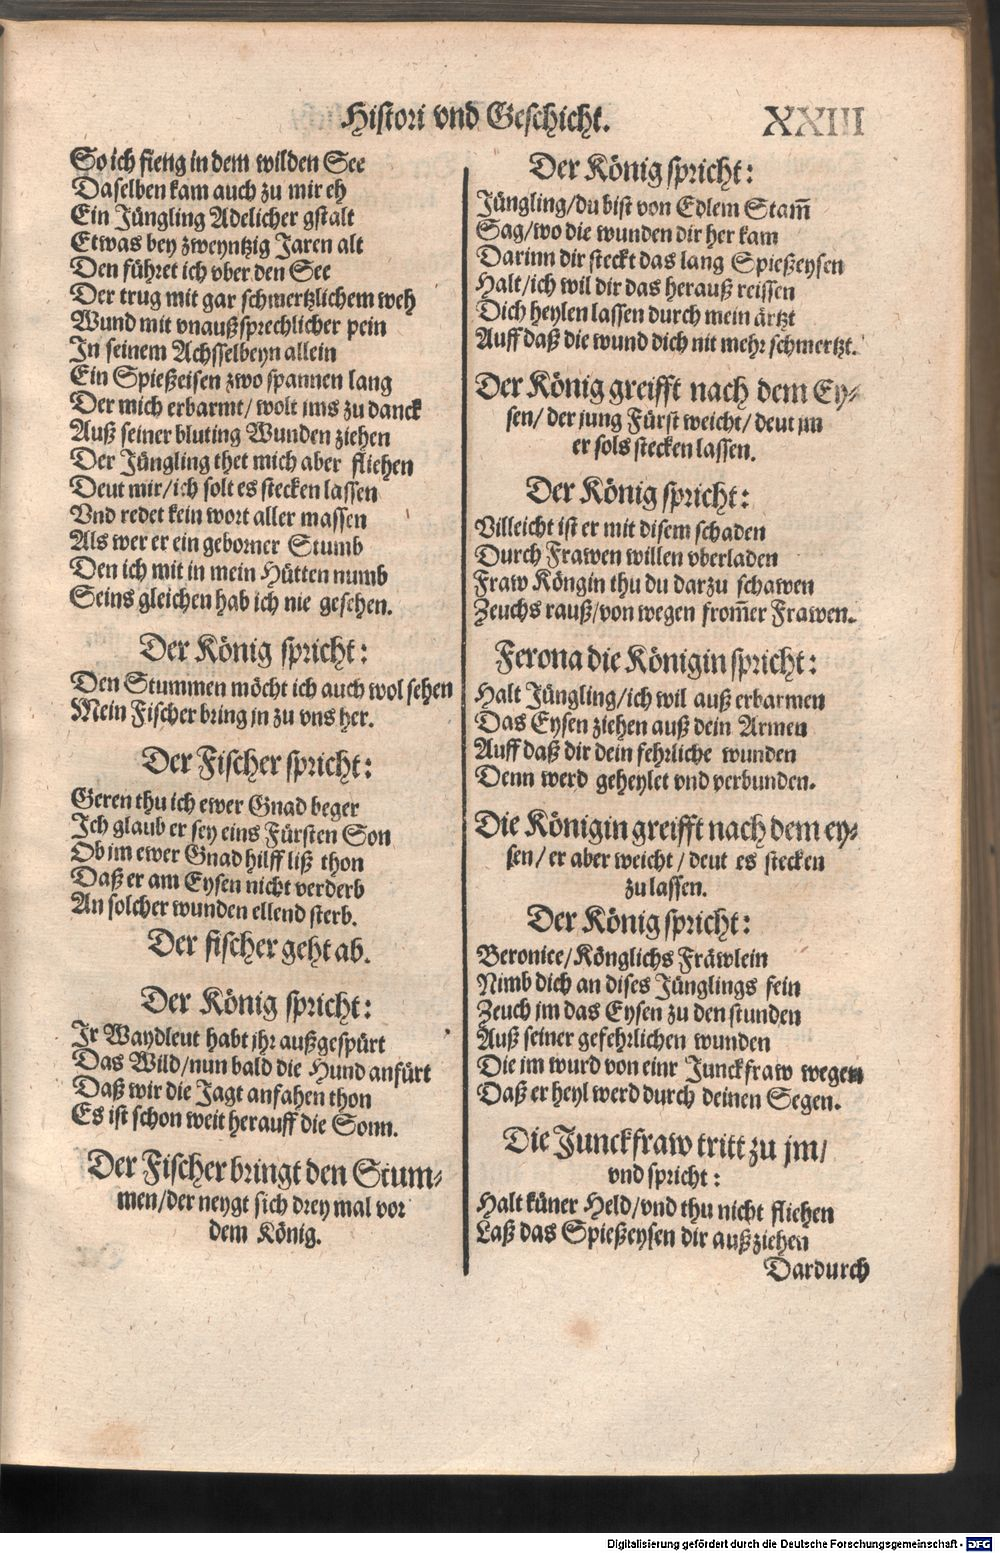 Histori vnd Geschicht.
XXIII
So ich fieng in dem wilden See
Daselben kam auch zu mir eh
Ein Jüngling Adelicher gstalt
Etwas bey zweyntzig Jaren alt
Den führet ich vber den See
Der trug mit gar schmertzlichem weh
Wund mit vnaußsprechlicher pein
In seinem Achsselbeyn allein
Ein Spießeisen zwo spannen lang
Der mich erbarmt/ wolt jms zu danck
Auß seiner bluting Wunden ziehen
Der Jüngling thet mich aber fliehen
Deut mir/ich solt es stecken lassen
Vnd redet kein wort aller massen
Als wer er ein geborner Stumb
Den ich mit in mein Hütten numb
Seins gleichen hab ich nie gesehen.
Der König spricht:
Den Stummen möcht ich auch wol sehen
Mein Fischer bring jn zu vns her.
Der Fischer spricht:
Geren thu ich ewer Gnad beger
Ich glaub er sey eins Fürsten Son
Ob jm ewer Gnad hilff liß thon
Daß er am Eysen nicht verderb
An solcher wunden ellend sterb.
Der fischer geht ab.
Der König spricht:
Ir Waydleut habt jhr außgespürt
Das Wild/nun bald die Hund anfürt
Daß wir die Jagt anfahen thon
Es ist schon weit herauff die Sonn.
Der Fischer bringt den Stum-
men/der neygt sich drey mal vor
dem König.
Der König spricht:
Jüngling/du bist von Edlem Stam̃
Sag/wo die wunden dir her kam
Darinn dir steckt das lang Spießeysen
Halt/ich wil dir das herauß reissen
Dich heylen lassen durch mein ärtzt
Auff daß die wund dich nit mehr schmertzt.
Der König greifft nach dem Ey-
sen/ der jung Fürst weicht/ deut jm
er sols stecken lassen.
Der König spricht:
Villeicht ist er mit disem schaden
Durch Frawen willen vberladen
Fraw Köngin thu du darzu schawen
Zeuchs rauß/von wegen from̃er Frawen.
Ferona die Königin spricht:
Halt Jüngling/ich wil auß erbarmen
Das Eysen ziehen auß dein Armen
Auff daß dir dein fehrliche wunden
Denn werd geheylet vnd verbunden.
Die Königin greifft nach dem ey-
sen/ er aber weicht/ deut es stecken
zu lassen.
Der König spricht:
Beronice/Könglichs Fräwlein
Nimb dich an dises Jünglings fein
Zeuch jm das Eysen zu den stunden
Auß seiner gefehrlichen wunden
Die jm wurd von einr Junckfraw wegen
Daß er heyl werd durch deinen Segen.
Die Junckfraw tritt zu jm/
vnd spricht:
Halt küner Held/vnd thu nicht fliehen
Laß das Spießeysen dir außziehen
Dardurch
Digitalisierung gefördert durch die Deutsche Forschungsgemeinschaft - DFG